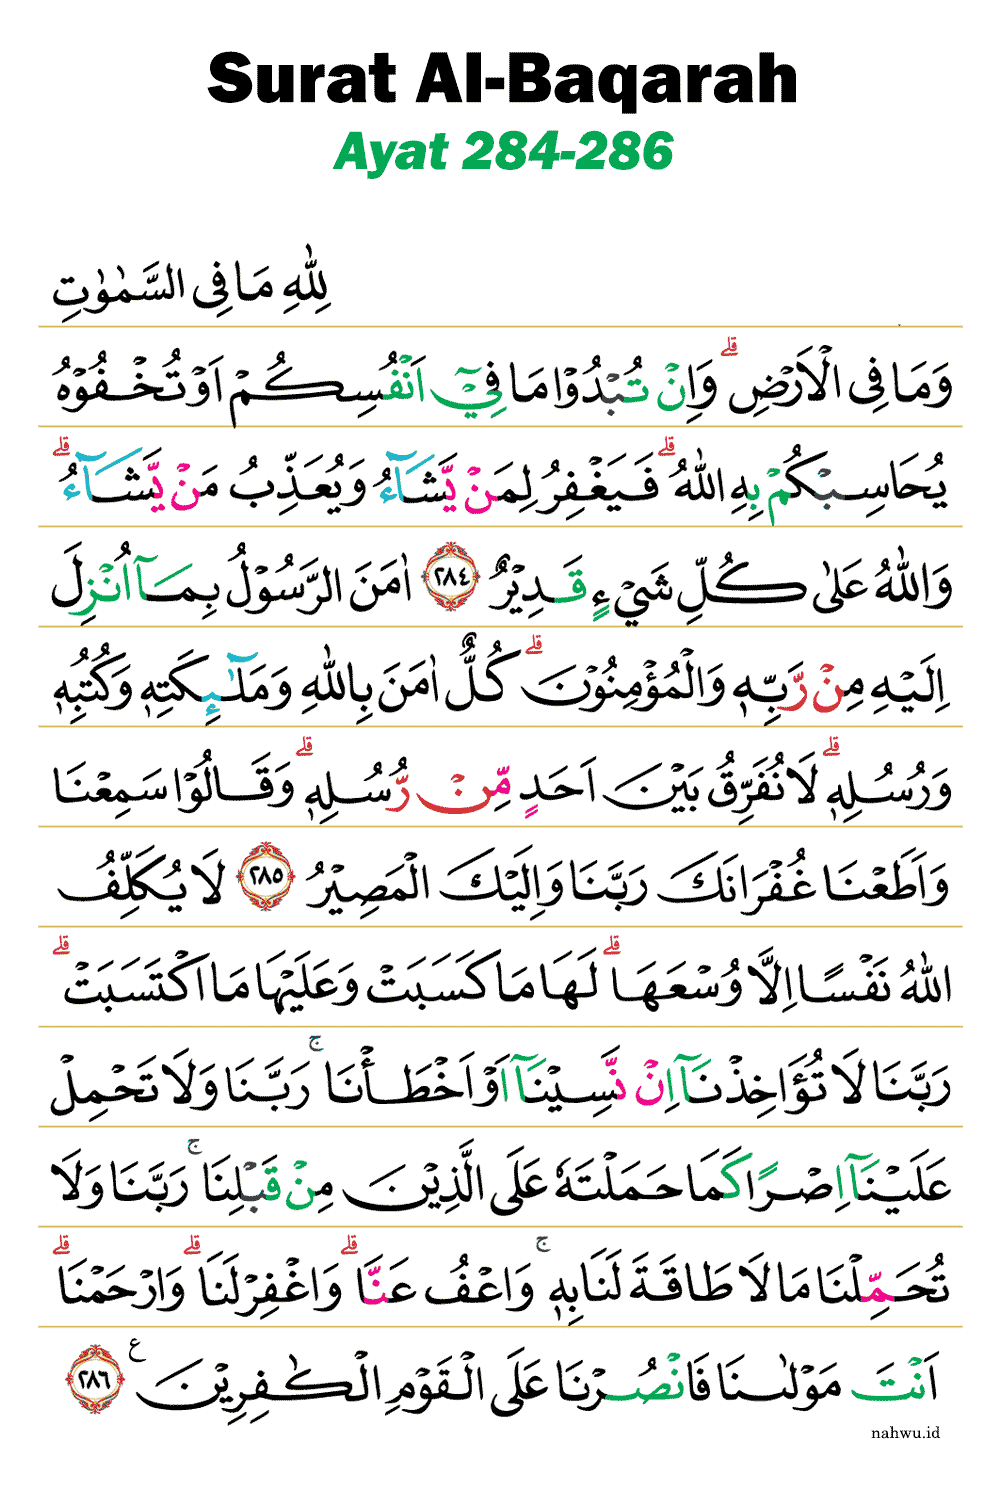 Surat Al-Baqarah
Ayat 284-286
لِلّٰهِ مَا فِى السَّمٰوٰتِ
وَمَا فِى الْاَرْضِ ۗ وَاِنْ تُبْدُوْا مَا فِيْٓ اَنْفُسِكُمْ اَوْ تُخْفُوْهُ
يُحَاسِبْكُمْ بِهِ اللّٰهُ ۗ فَيَغْفِرُ لِمَنْ يَّشَاۤءُ وَيُعَذِّبُ مَنْ يَّشَاۤءُ ۗ
وَاللّٰهُ عَلٰى كُلِّ شَيْءٍ قَدِيْرٌ ٢٨٤ اٰمَنَ الرَّسُوْلُ بِمَآ اُنْزِلَ
اِلَيْهِ مِنْ رَّبِّهٖ وَالْمُؤْمِنُوْنَ ۗ كُلٌّ اٰمَنَ بِاللّٰهِ وَمَلٰۤىِٕكَتِهٖ وَكُتُبِهٖ
وَرُسُلِهٖ ۗ لَا نُفَرِّقُ بَيْنَ اَحَدٍ مِّنْ رُّسُلِهٖ ۗ وَقَالُوْا سَمِعْنَا
وَاَطَعْنَا غُفْرَانَكَ رَبَّنَا وَاِلَيْكَ الْمَصِيْرُ ٢٨٥ لَا يُكَلِّفُ
اللّٰهُ نَفْسًا اِلَّا وُسْعَهَا ۗ لَهَا مَا كَسَبَتْ وَعَلَيْهَا مَا اكْتَسَبَتْ ۗ
رَبَّنَا لَا تُؤَاخِذْنَآ اِنْ نَّسِيْنَآ اَوْ اَخْطَأْنَا ۚ رَبَّنَا وَلَا تَحْمِلْ
عَلَيْنَآ اِصْرًا كَمَا حَمَلْتَهٗ عَلَى الَّذِيْنَ مِنْ قَبْلِنَا ۚ رَبَّنَا وَلَا
تُحَمِّلْنَا مَا لَا طَاقَةَ لَنَا بِهٖ ۚ وَاعْفُ عَنَّا ۗ وَاغْفِرْ لَنَا ۗ وَارْحَمْنَا ۗ
اَنْتَ مَوْلٰىنَا فَانْصُرْنَا عَلَى الْقَوْمِ الْكٰفِرِيْنَ ع ٢٨٦
nahwu.id